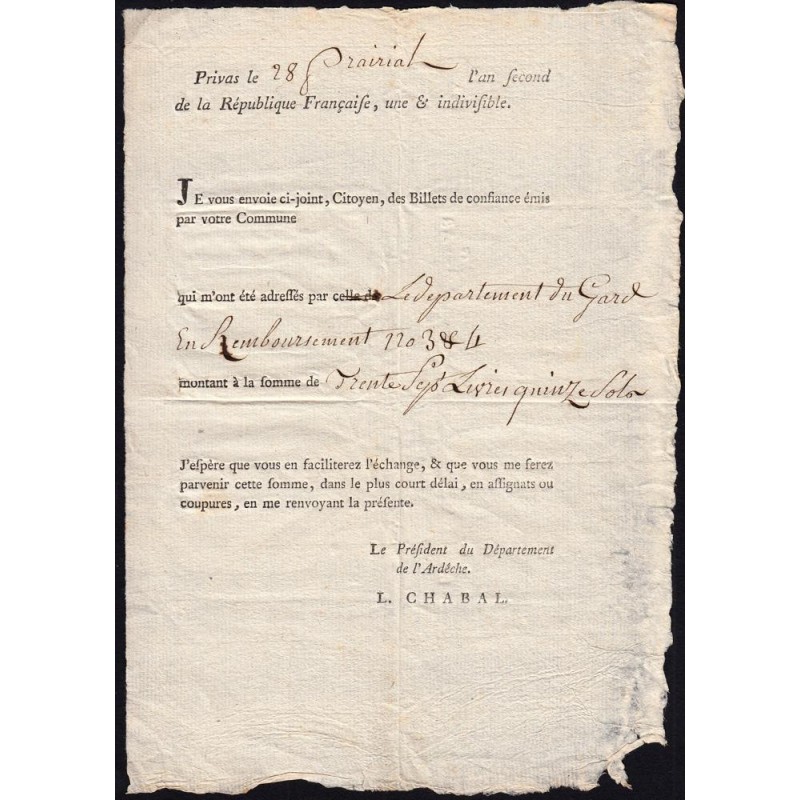 Privas le 28 Prairial l'an ſecond
de la République Françaiſe, une & indiviſible.
JE vous envoie ci-joint, Citoyen, des Billets de confiance émis
par votre Commune
qui m'ont été adreſſés par celle de Le departement du Gard
En Remboursement no 384
montant à la ſomme de Trente Sept Livres quinze Sols
J'eſpère que vous en faciliterez l'échange, & que vous me ferez
parvenir cette ſomme, dans le plus court délai, en aſſignats ou
coupures, en me renvoyant la préſente.
Le Préſident du Département
de l'Ardêche.
L. CHABAL.